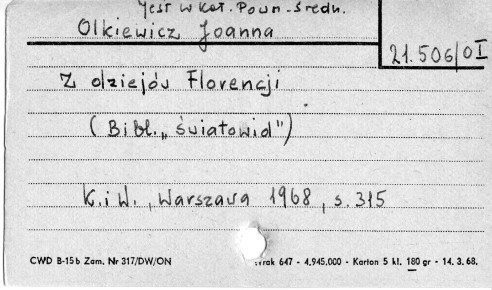 Jest w Kat. Pow.-Średn.
Olkiewicz Joanna
21.506/OI
Z dziejów Florencji
(Bibl. „Światowid")
K.i W., Warszawa 1968, s. 315
CWD B-15b Zam. Nr 317/DW/ON
rak 647 - 4.945.000 - Karton 5 kl. 180 gr - 14. 3. 68.